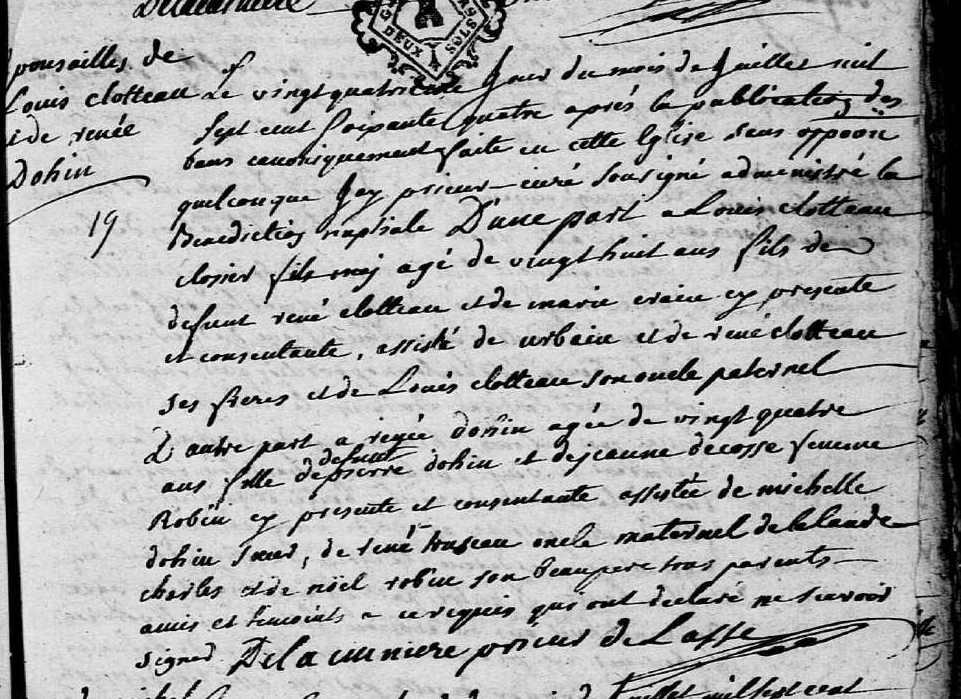 Delacunniere
DEUX SOLS
épousailles de
Louis clotteau
et de renée
Dohin
19
Le vingt quatrieme Jour du mois de Juillet mil
sept cent soixante quatre aprés la publication des
bans canoniquement faite en cette Eglise sans oppoon
quelconque Jay prieur curé sousigné administré la
Benediction nuptiale D'une part a Louis clotteau
closier fils maj agé de vingt huit ans fils de
defunt rené clotteau et de marie craiu cy presente
et consentante, assisté de urbain et de rené clotteau
ses freres et de Louis clotteau son oncle paternel
D'autre part a renée dohin agée de vingt quatre
ans fille de defunt pierre dohin et de jeanne decosse femme
Robin cy presente et consentante assistée de michelle
dohin sœur, de rené oncle maternel de lalande
charles et de noel robin son beaupere tous parents
amis et temoins a ce requis qui ont declaré ne scavoir
signer Delacunniere prieur de Lasse
Juillet mil sept cent